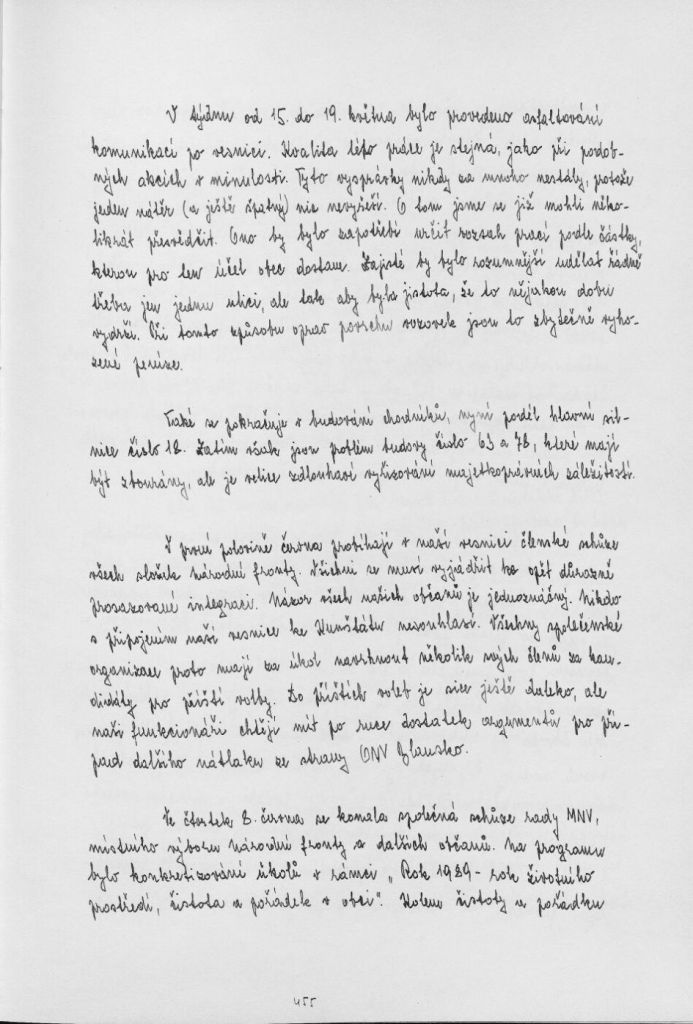 V týdnu od 15. do 19. května bylo provedeno asfaltování
komunikací po vesnici. Kvalita této práce je stejná, jako při podob-
ných akcích v minulosti. Tyto vysprávky nikdy za mnoho nestály, protože
jeden nátěr (a ještě špatný) nic nevyřeší. O tom jsme se již mohli něko-
likrát přesvědčit. Ono by bylo zapotřebí určit rozsah prací podle částky,
kterou pro ten účel obec dostane. Zajisté by bylo rozumnější udělat řádně
třeba jen jednu ulici, ale tak aby byla jistota, že to nějakou dobu
vydrží. Při tomto způsobu oprav povrchu vozovek jsou to zbytečně vyho-
zené peníze.
Také se pokračuje v budování chodníků, nyní podél hlavní sil-
nice číslo 18. Zatím však jsou problém budovy číslo 63 a 78, které mají
být zbourány, ale je velice zdlouhavé vyřizování majetkoprávních záležitostí.
V první polovině června probíhají v naší vesnici členské schůze
všech složek národní fronty. Všichni se musí vyjádřit ke opět důrazně
prosazované integraci. Názor všech našich občanů je jednoznačný. Nikdo
s připojením naší vesnice ke Kunštátu nesouhlasí. Všechny společenské
organizace proto mají za úkol navrhnout několik svých členů za kan-
didáty pro příští volby. Do příštích voleb je sice ještě daleko, ale
naši funkcionáři chtějí mít po ruce dostatek argumentů pro pří-
pad dalšího nátlaku ze strany ONV Blansko.
Ve čtvrtek 8. června se konala společná schůze rady MNV,
místního výboru národní fronty a dalších občanů. Na programu
bylo konkretizování úkolů v rámci „Rok 1989 - rok životního
prostředí, čistota a pořádek v obci". Kolem čistoty a pořádku
455